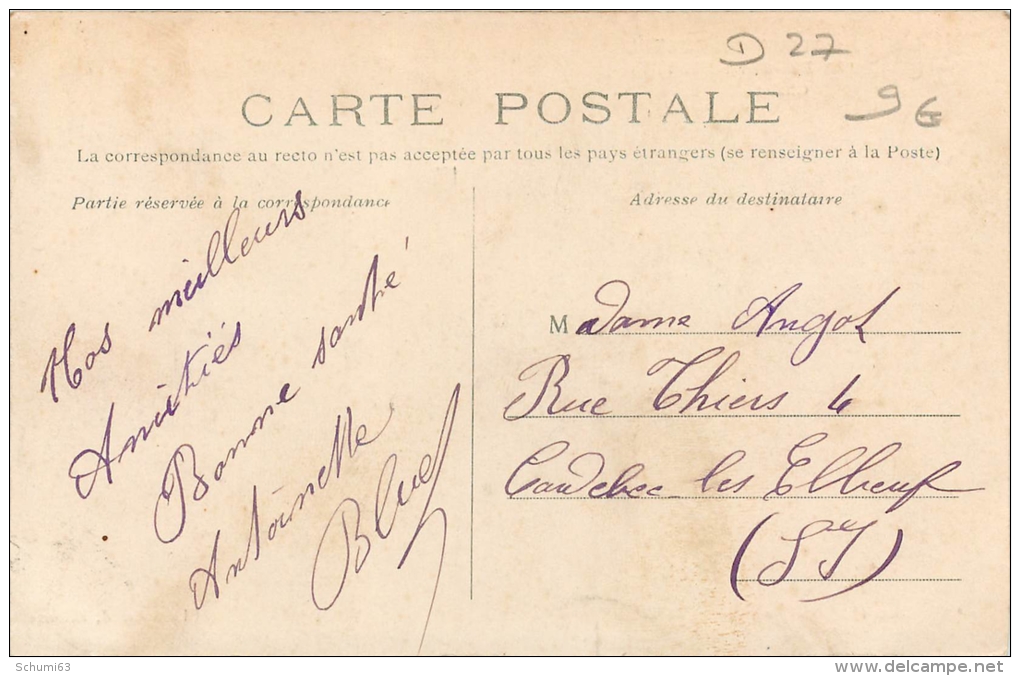 D 27
9 €
CARTE POSTALE
La correspondance au recto n'est pas acceptée par tous les pays étrangers (se renseigner à la Poste)
Partie réservée à la correspondance
Nos meilleurs
Amitiés
Bonne santé
Antoinette
Bluet
Adresse du destinataire
Madame Angot
Rue Thiers 4
Caudebec les Elbeuf
(S Ire)
Schumi63
www.delcampe.net